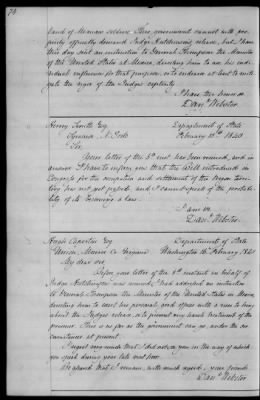 band of Mexican soldiers. This government cannot with pro-
priety officially demand Judge Hutchinson's release, but I have
this day sent an instruction to General Thompson the Minister
of the United States at Mexico, directing him to use his indi-
vidual influence for that purpose, or to endeavor at least to miti-
gate the rigor of the Judge's captivity.
I have the honor
Danl Webster.
Henry Esq Department of State
N. York February 15th
Sir,
Your letter of the 8th inst. has been received, and in
answer I have to inform you that the Bill introduced in
Congress for the occupation and settlement of the Oregon Terri-
tory has not yet passed and I cannot speak of the probabi-
lity of its becoming a law.
I am &c.
Danl Webster.
Esq Department of State
Washington 16 February
My dear sir,
Before your letter of the 8th instant in behalf of
Judge Hutchinson was received, I had addressed an instruction
to General Thompson the Minister of the United States in Mexico,
directing him to exert his personal good offices with a view to bring
about the Judge's release, or to prevent any harsh treatment of the
prisoner. This is as far as the government can go, under the cir-
cumstances at present.
I regret very much that I did not see you in the way of which
you speak during your late visit here.
I remain, with much regard, your friend
Danl Webster.